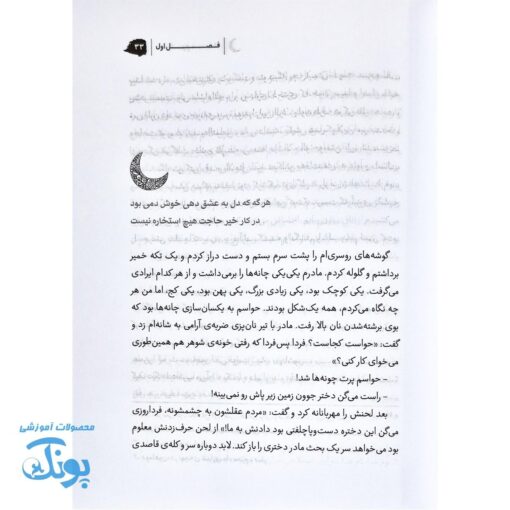 فصل اول
۳۳
هر گه که دل به عشق دهی خوش دمی بود
در کار خیر حاجت هیچ استخاره نیست
گوشه‌های روسری‌ام را پشت سرم بستم و دست دراز کردم و یک تکه خمیر
برداشتم و گلوله کردم. مادرم یکی‌یکی چانه‌ها را برمی‌داشت و از هر کدام ایرادی
می‌گرفت. یکی کوچک بود، یکی زیادی بزرگ، یکی پهن بود، یکی کج، اما من هر
چه نگاه می‌کردم، همه یک‌شکل بودند. حواسم به یکسان‌سازی چانه‌ها بود که
بوی برشته‌شدن نان بالا رفت. مادر با تیر نان‌پزی ضربه‌ی آرامی به شانه‌ام زد و
گفت: «حواست کجاست؟ فردا پس‌فردا که رفتی خونه‌ی شوهر هم همین‌طوری
می‌خوای کار کنی؟»
- حواسم پرت چونه‌ها شد!
- راست می‌گن دختر جوون زمین زیر پاش رو نمی‌بینه!
بعد لحنش را مهربانانه کرد و گفت: «مردم عقلشون به چشمشونه. فرداروزی
می‌گن این دختره دست‌وپاچلفتی بود دادنش به ما!» از لحن حرف‌زدنش معلوم
بود می‌خواهد سر یک بحث مادر دختری را باز کند. لابد دوباره سر و کله‌ی قاصدی
محصولات آموزشی
پونک